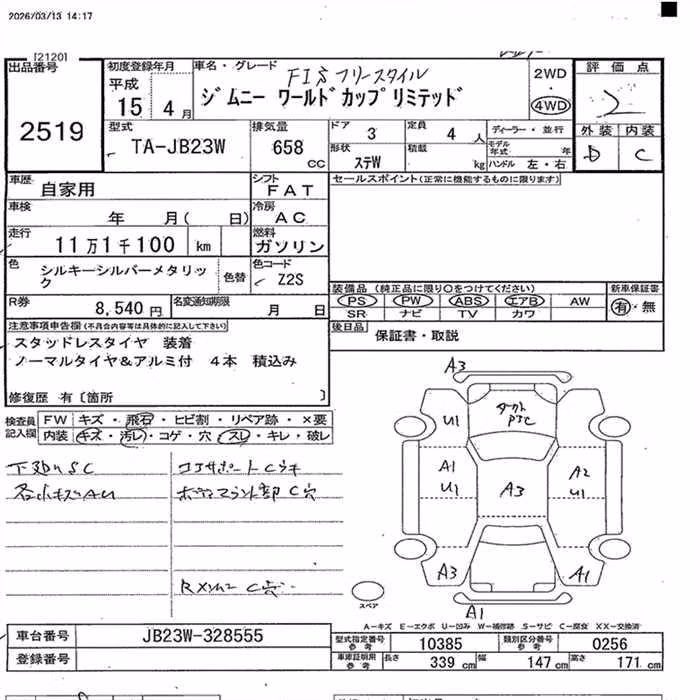 2026/03/13 14:17
[2120]
出品番号
2519
初度登録年月
平成
15 4 月
車名・グレード
FIS フリースタイル
ジムニー ワールドカップリミテッド
2WD
4WD
評価点
外装 内装
D C
型式
TA-JB23W
排気量
658 CC
ドア 3
定員 4 人
ディーラー・並行
モデル年式 年
形状 ステW
積載 kg
ハンドル 左・右
車歴
自家用
シフト
FAT
セールスポイント(正常に機能するものに限ります)
車検
年 月( 日)
冷房
AC
走行
11万1千100 km
燃料
ガソリン
色
シルキーシルバーメタリック
色替
色コード
Z2S
装備品(純正品に限り○をつけてください)
新車保証書
PS PW ABS エアB AW
有・無
SR ナビ TV カワ
R券
8,540 円
名変通知期限
月 日
後日品
保証書・取説
注意事項申告欄(不具合内容等は具体的に記入して下さい)
スタッドレスタイヤ 装着
ノーマルタイヤ&アルミ付 4本 積込み
修復歴 有〔箇所 〕
検査員記入欄
FW キズ・飛石・ヒビ割・リペア跡・×要
内装 キズ・汚レ・コゲ・穴・スレ・キレ・破レ
下廻りSC
コアサポートCラキ
各小キズAU
C穴
A3
U1
A1
U1
A3
A2
U1
A3
A1
A1
スペア
A-キズ E-エクボ U-凹み W-補修跡 S-サビ C-腐食 XX-交換済
車台番号
JB23W-328555
登録番号
型式指定番号 参考
10385
類別区分番号 参考
0256
車庫証明用 参考
長さ 339 cm
幅 147 cm
高さ 171 cm